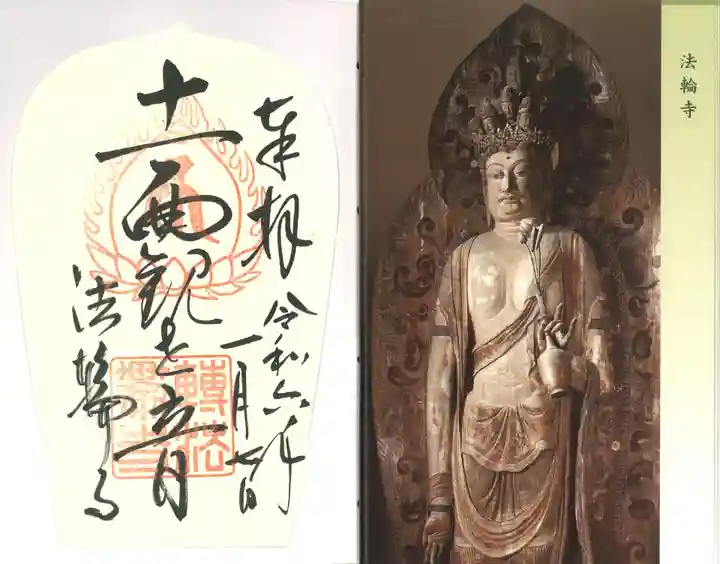 奉拝
令和六年
一月七日
十一面観世音
法輪寺
法輪寺